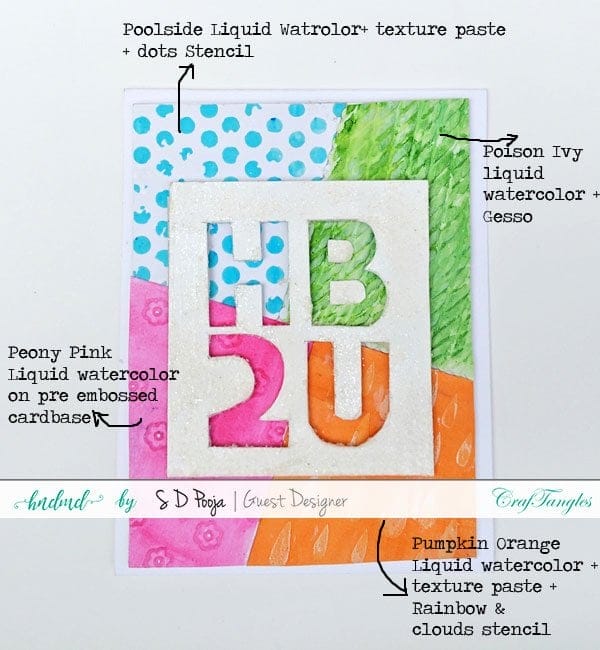 Poolside Liquid Watrolor+ texture paste
+ dots Stencil
Poison Ivy
liquid
watercolor +
Gesso
HB
2U
Peony Pink
Liquid watercolor
on pre embossed
cardbase
hndmd by S D Pooja | Guest Designer
CrafTangles
Pumpkin Orange
Liquid watercolor +
texture paste +
Rainbow &
clouds stencil